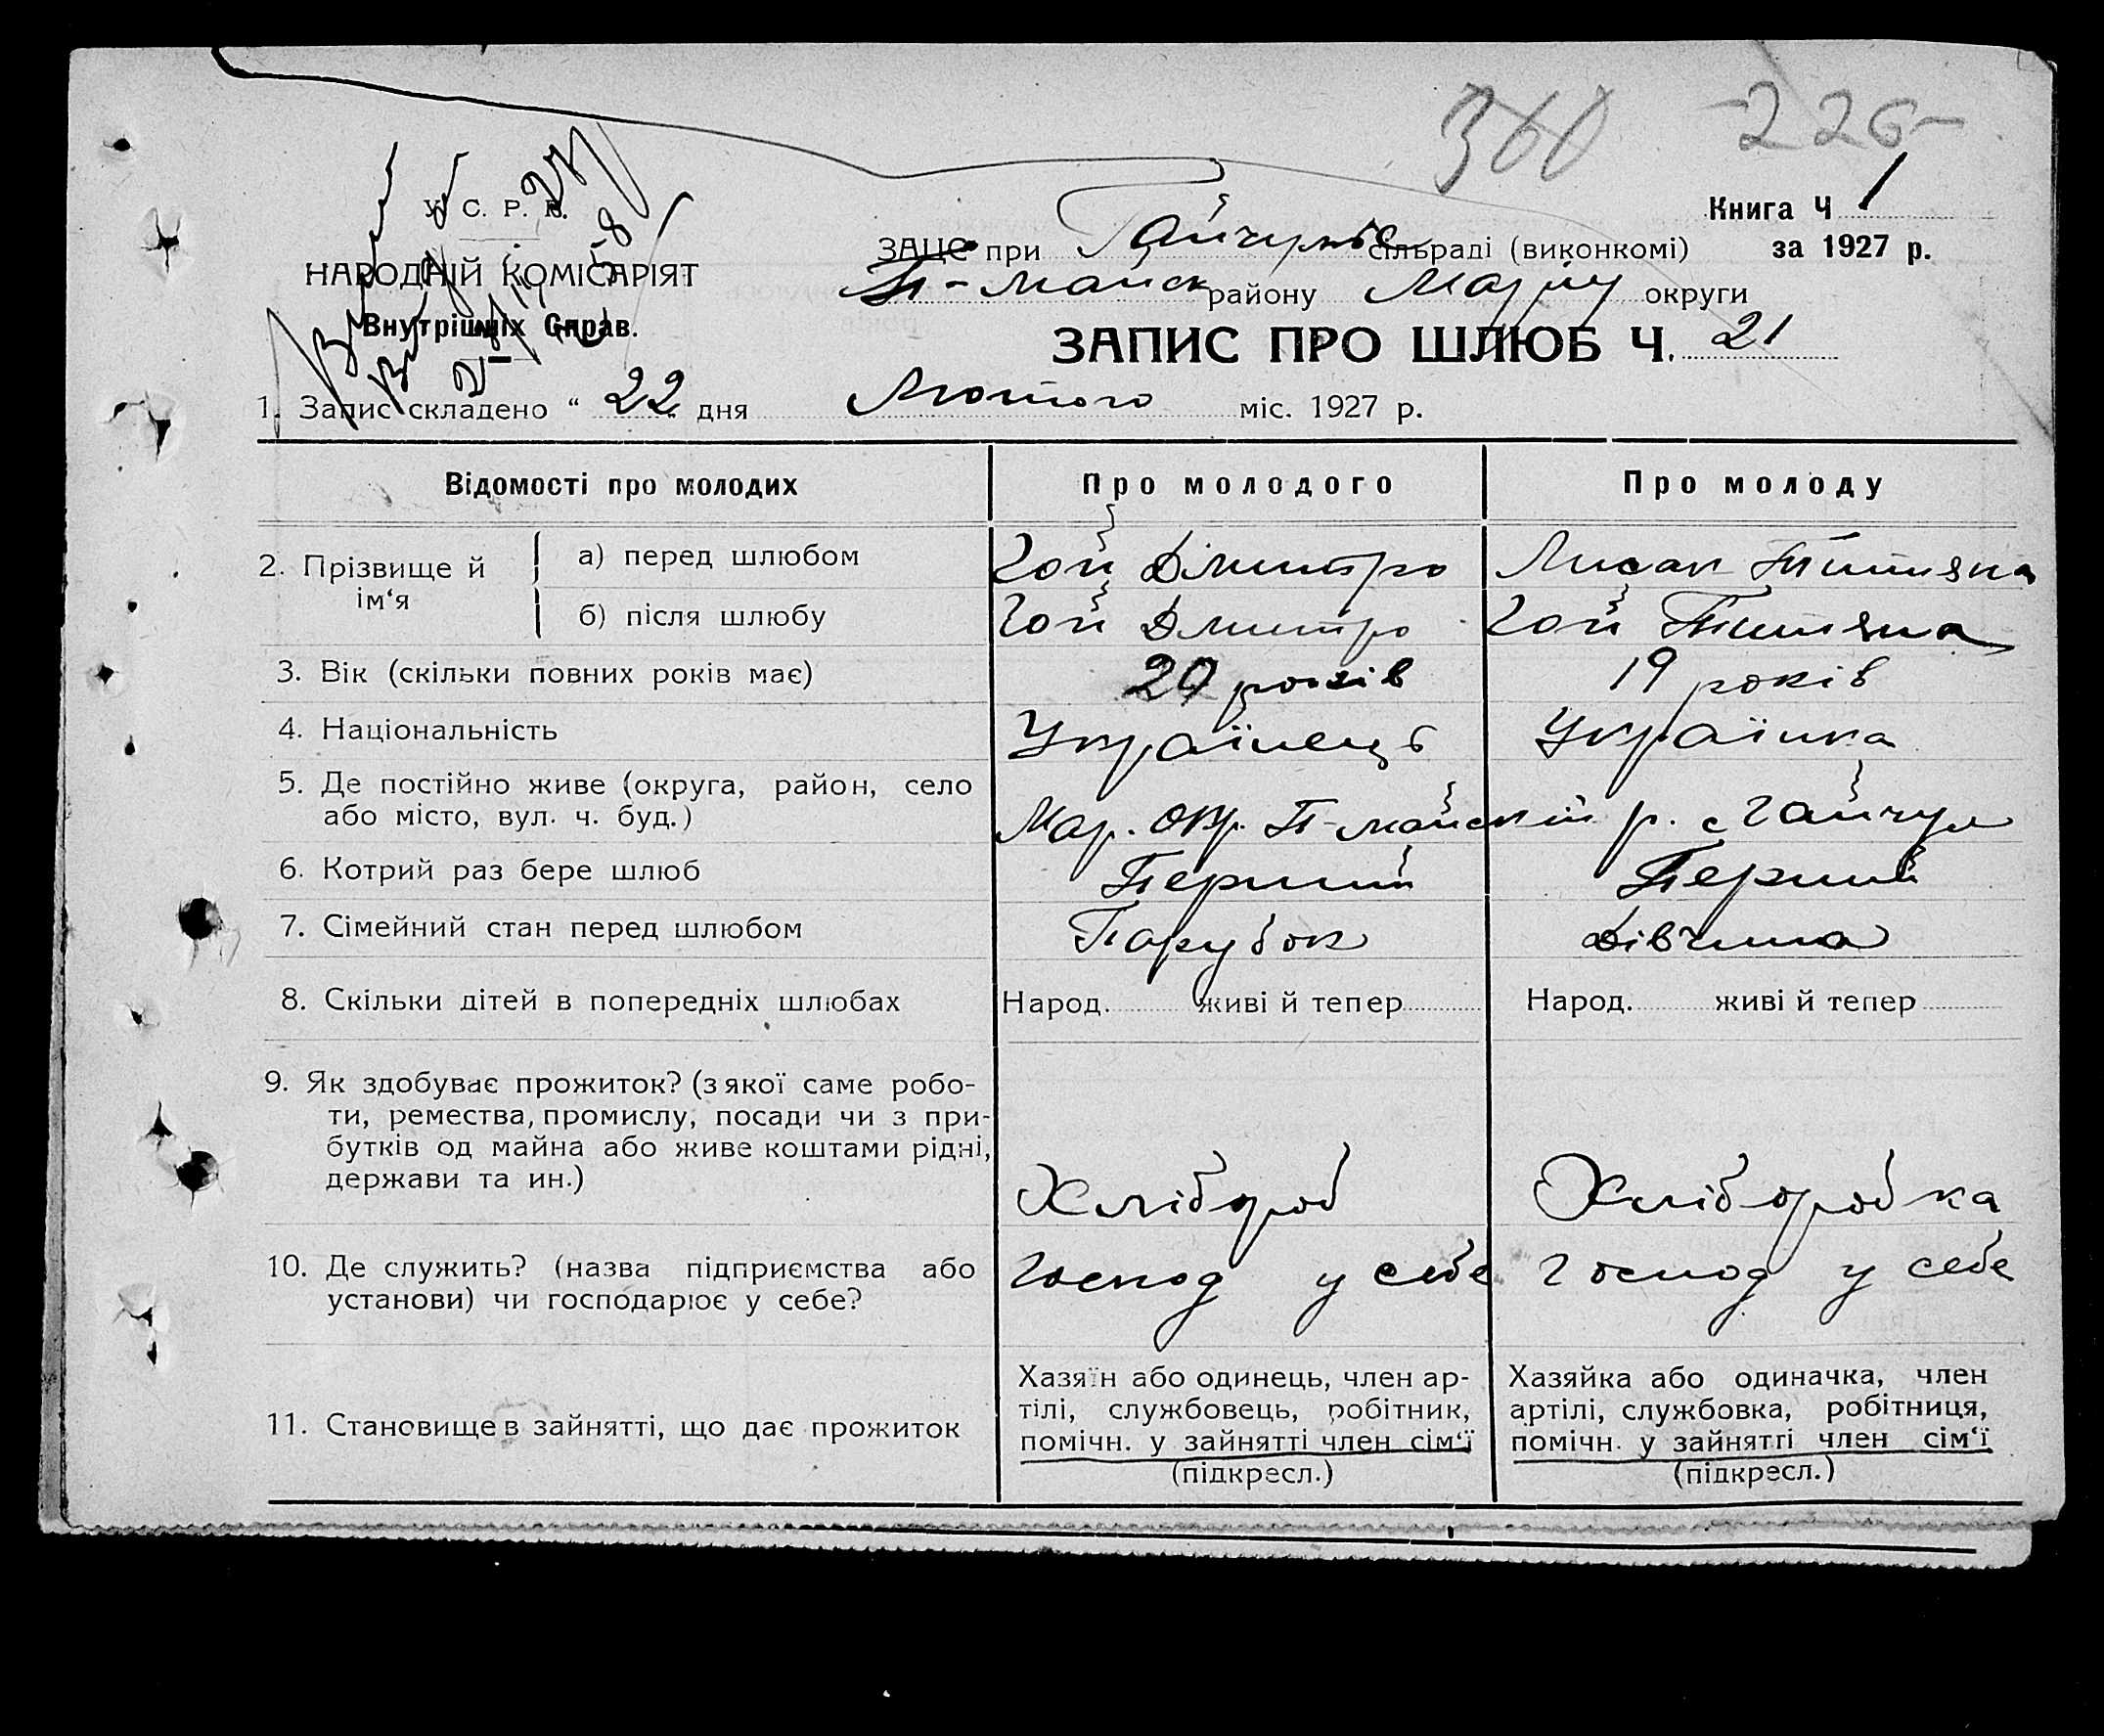 360 -226-
У. С. Р. Р.
НАРОДНІЙ КОМІСАРІЯТ
Внутрішніх Справ.
Книга Ч 1
за 1927 р.
ЗАЦС при Гайчульс сільраді (виконкомі)
П-Майск району Маріу округи
ЗАПИС ПРО ШЛЮБ Ч. 21
1. Запис складено " 22 " дня Лютого міс. 1927 р.
Відомості про молодих Про молодого Про молоду
2. Прізвище й ім‘я
а) перед шлюбом Гой Дмитро Лисак Титяна
б) після шлюбу Гой Дмитро Гой Титяна
3. Вік (скільки повних років має) 20 років 19 років
4. Національність Українець Українка
5. Де постійно живе (округа, район, село
або місто, вул. ч. буд.) Мар. окр. П-майскій р. с Гайчул
6. Котрий раз бере шлюб Перший Перший
7. Сімейний стан перед шлюбом Парубок Дівчина
8. Скільки дітей в попередніх шлюбах Народ. живі й тепер Народ. живі й тепер
9. Як здобуває прожиток? (з якої саме робо-
ти, ремества, промислу, посади чи з при-
бутків од майна або живе коштами рідні,
держави та ин.) Хлібороб Хліборобка
10. Де служить? (назва підприємства або
установи) чи господарює у себе? Господ у себе Господ у себе
11. Становище в зайнятті, що дає прожиток
Хазяїн або одинець, член ар-
тілі, службовець, робітник,
помічн. у зайнятті член сім‘ї
(підкресл.)
Хазяйка або одиначка, член
артілі, службовка, робітниця,
помічн. у зайнятті член сім‘ї
(підкресл.)